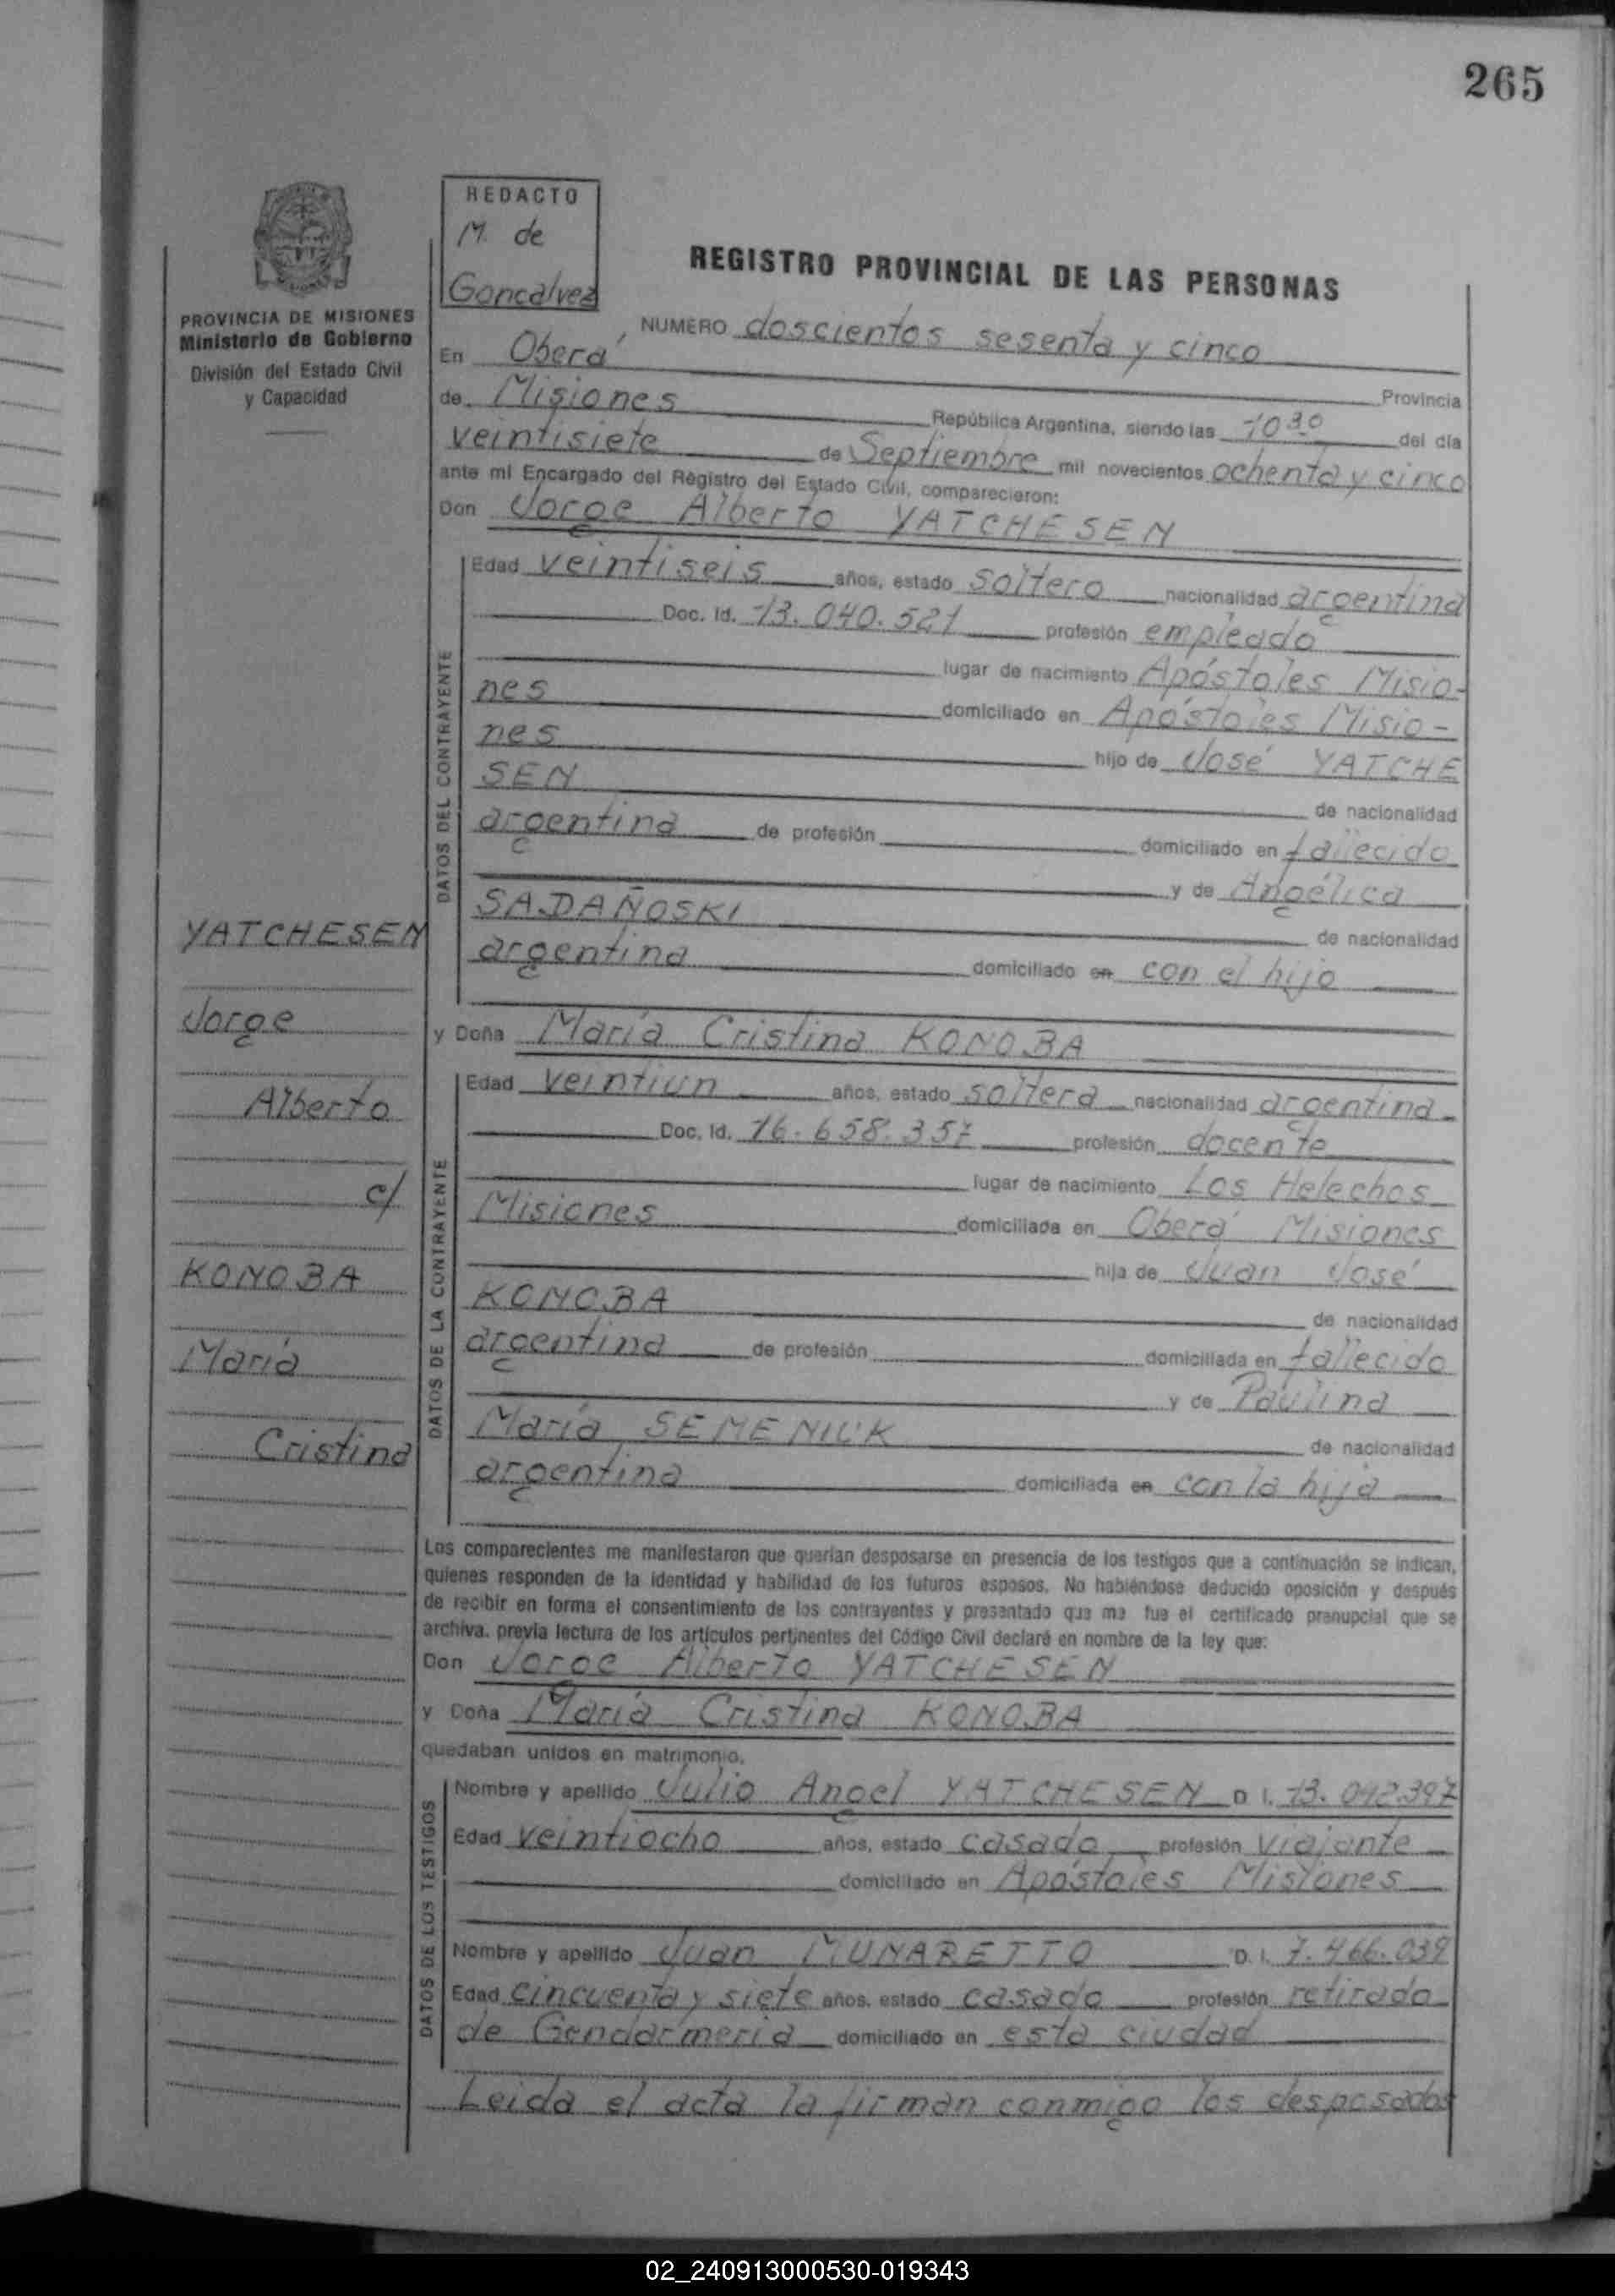 265
REDACTO
M. de
Goncalvez
REGISTRO PROVINCIAL DE LAS PERSONAS
PROVINCIA DE MISIONES
Ministerio de Gobierno
División del Estado Civil
y Capacidad
NUMERO doscientos sesenta y cinco
En Oberá Provincia
de Misiones República Argentina, siendo las 10 30 del día
veintisiete de Septiembre mil novecientos ochenta y cinco
ante mi Encargado del Registro del Estado Civil, comparecieron:
Don Jorge Alberto YATCHESEN
DATOS DEL CONTRAYENTE
Edad veintiseis años, estado soltero nacionalidad argentina
Doc. Id. 13.040.521 profesión empleado
lugar de nacimiento Apóstoles Misio-
nes domiciliado en Apóstoles Misio-
nes hijo de José YATCHE
SEN de nacionalidad
argentina de profesión domiciliado en fallecido
y de Angélica
SADAÑOSKI de nacionalidad
argentina domiciliado en con el hijo
y Doña María Cristina KONOBA
DATOS DE LA CONTRAYENTE
Edad veintiun años, estado soltera nacionalidad argentina
Doc. Id. 16.658.357 profesión docente
lugar de nacimiento Los Helechos
Misiones domiciliada en Oberá Misiones
hija de Juan José
KONOBA de nacionalidad
argentina de profesión domiciliada en fallecido
y de Paulina
María SEMENIUK de nacionalidad
argentina domiciliada en con la hija
YATCHESEN
Jorge
Alberto
c/
KONOBA
María
Cristina
Los comparecientes me manifestaron que querían desposarse en presencia de los testigos que a continuación se indican,
quienes responden de la identidad y habilidad de los futuros esposos. No habiéndose deducido oposición y después
de recibir en forma el consentimiento de los contrayentes y presentado que me fue el certificado prenupcial que se
archiva. previa lectura de los artículos pertinentes del Código Civil declaré en nombre de la ley que:
Don Jorge Alberto YATCHESEN
y Doña María Cristina KONOBA
quedaban unidos en matrimonio.
DATOS DE LOS TESTIGOS
Nombre y apellido Julio Angel YATCHESEN D. I. 13.042.397
Edad veintiocho años, estado casado profesión viajante
domiciliado en Apóstoles Misiones
Nombre y apellido Juan MUNARETTO D. I. 7.466.039
Edad cincuenta y siete años, estado casado profesión retirado
de Gendarmeria domiciliado en esta ciudad
Leida el acta la firman conmigo los desposados
02_240913000530-019343